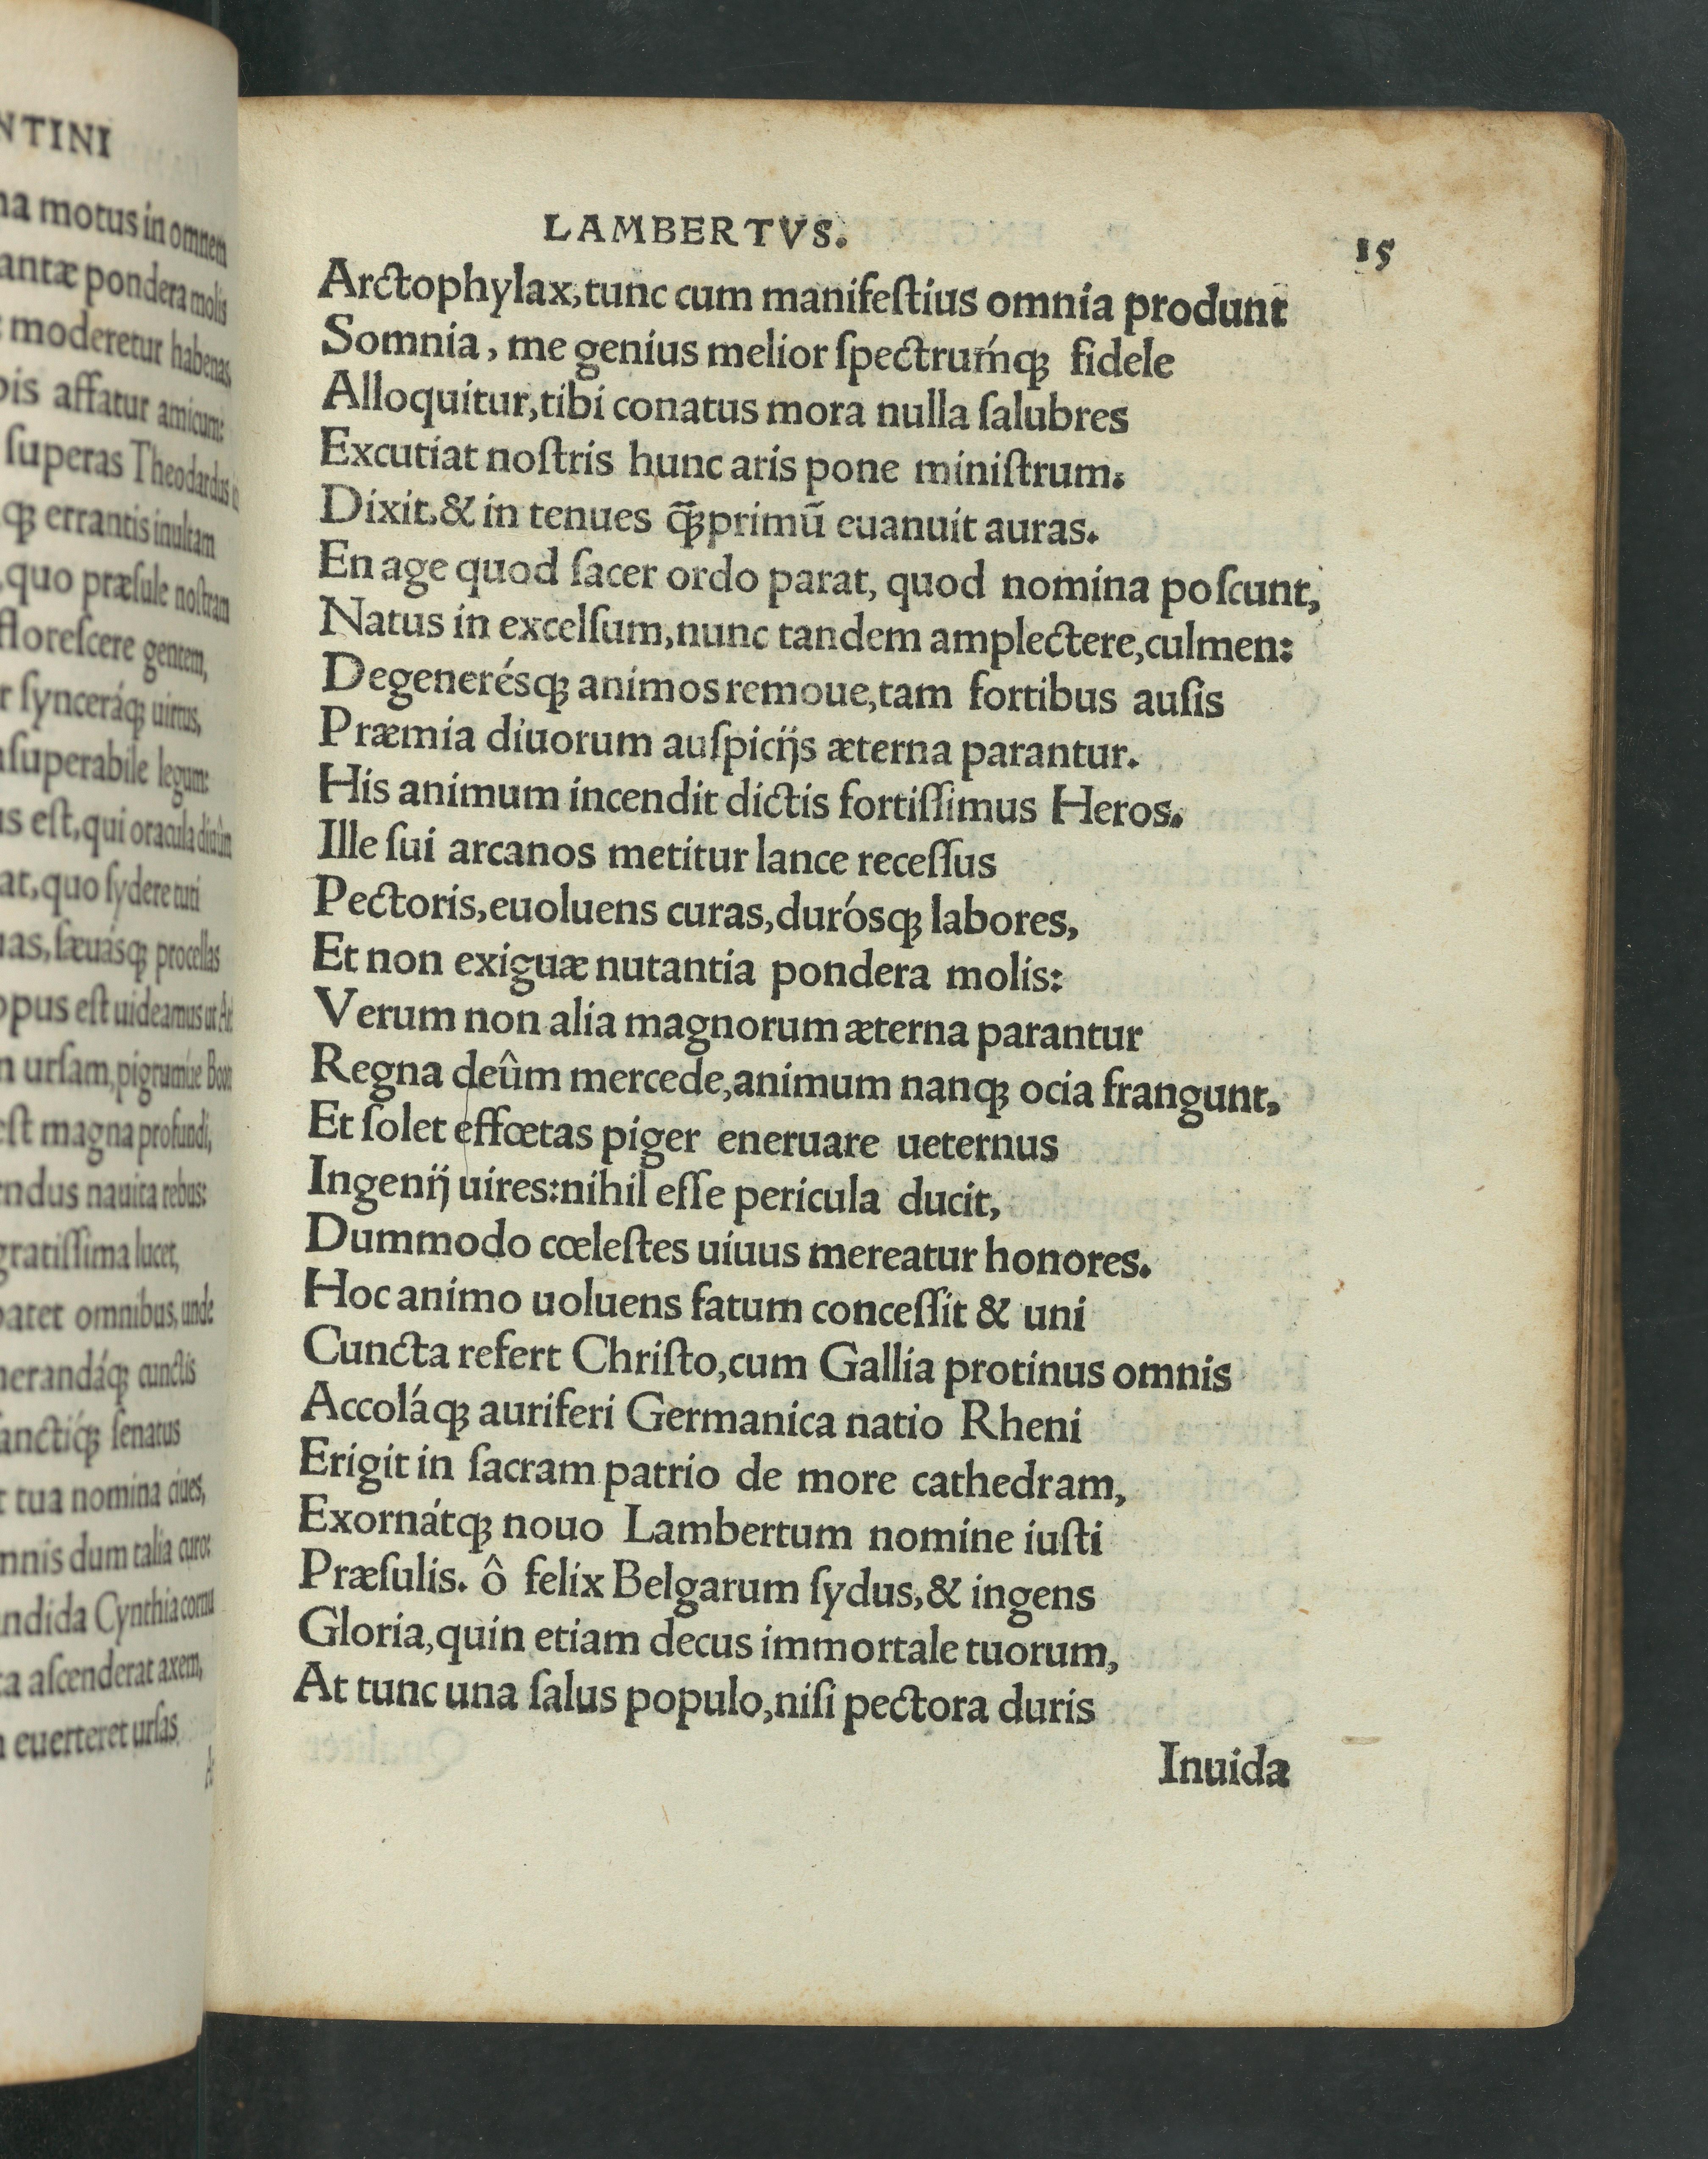 NTINI
motus in omnem
pondera molis
moderetur habenas
affatur amicum:
superas Theodardus
errantis inultam
quo præsule nostram
florescere gentem,
synceráq; uirtus,
legum:
est, qui oracula diuûm
quo sydere tuti
sæuásq; procellas
opus est uideamus ut
ursam, pigrumúe
est magna profundi,
nauita rebus:
gratissima lucet,
patet omnibus, unde
cunctis
senatus
tua nomina ciues,
dum talia curo:
Cynthia cornu
ascenderat axem,
euerteret ursas
LAMBERTVS. 15
Arctophylax, tunc cum manifeſtius omnia produnt
Somnia, me genius melior ſpectruḿq; fidele
Alloquitur, tibi conatus mora nulla ſalubres
Excutiat noſtris hunc aris pone miniſtrum.
Dixit. & in tenues q̃ꝫprimũ euanuit auras.
En age quod ſacer ordo parat, quod nomina poſcunt,
Natus in excelſum, nunc tandem amplectere, culmen:
Degenerésq; animos remoue, tam fortibus auſis
Præmia diuorum auſpicijs æterna parantur.
His animum incendit dictis fortiſſimus Heros.
Ille ſui arcanos metitur lance receſſus
Pectoris, euoluens curas, durósq; labores,
Et non exiguæ nutantia pondera molis:
Verum non alia magnorum æterna parantur
Regna deûm mercede, animum nanq; ocia frangunt,
Et ſolet effœtas piger eneruare ueternus
Ingenij uires: nihil eſſe pericula ducit,
Dummodo cœleſtes uiuus mereatur honores.
Hoc animo uoluens fatum conceſſit & uni
Cuncta refert Chriſto, cum Gallia protinus omnis
Accoláq; auriferi Germanica natio Rheni
Erigit in ſacram patrio de more cathedram,
Exornátq; nouo Lambertum nomine iuſti
Præſulis. ô felix Belgarum ſydus, & ingens
Gloria, quin etiam decus immortale tuorum,
At tunc una ſalus populo, niſi pectora duris
Inuida